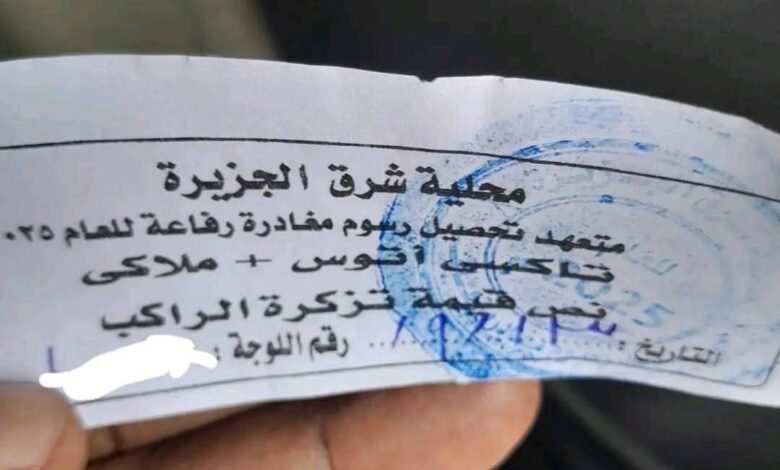 محلية شرق الجزيرة
متعهد تحصيل رسوم مغادرة رفاعة للعام ٢٥٠
تاكسى اتوس + ملاكى
نص قيمة تزكرة الراكب
التاريخ : رقم اللوحة :
2025